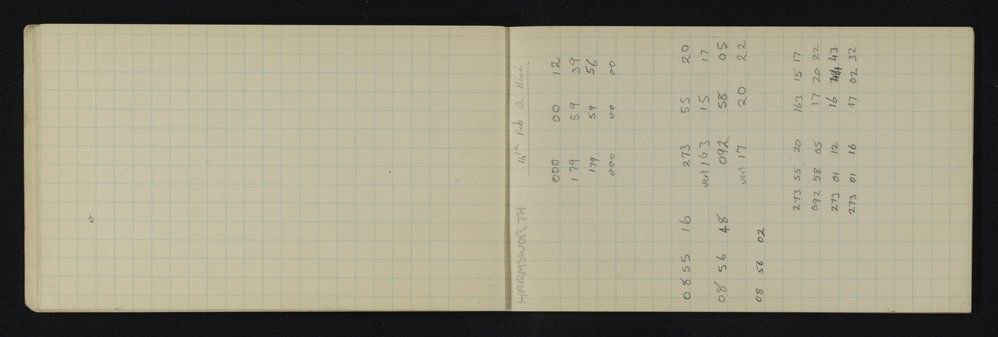 HARMSWORTH 14th Feb
000 00 12
179 59 39
179 59 56
000 00 00
08 55 16 273 55 20
vert 163 15 17
08 56 48 092 58 05
vert 17 20 22
08 56 02
273 55 20 163 15 17
092 58 05 17 20 22
273 01 12 16 43
273 01 16 17 02 32